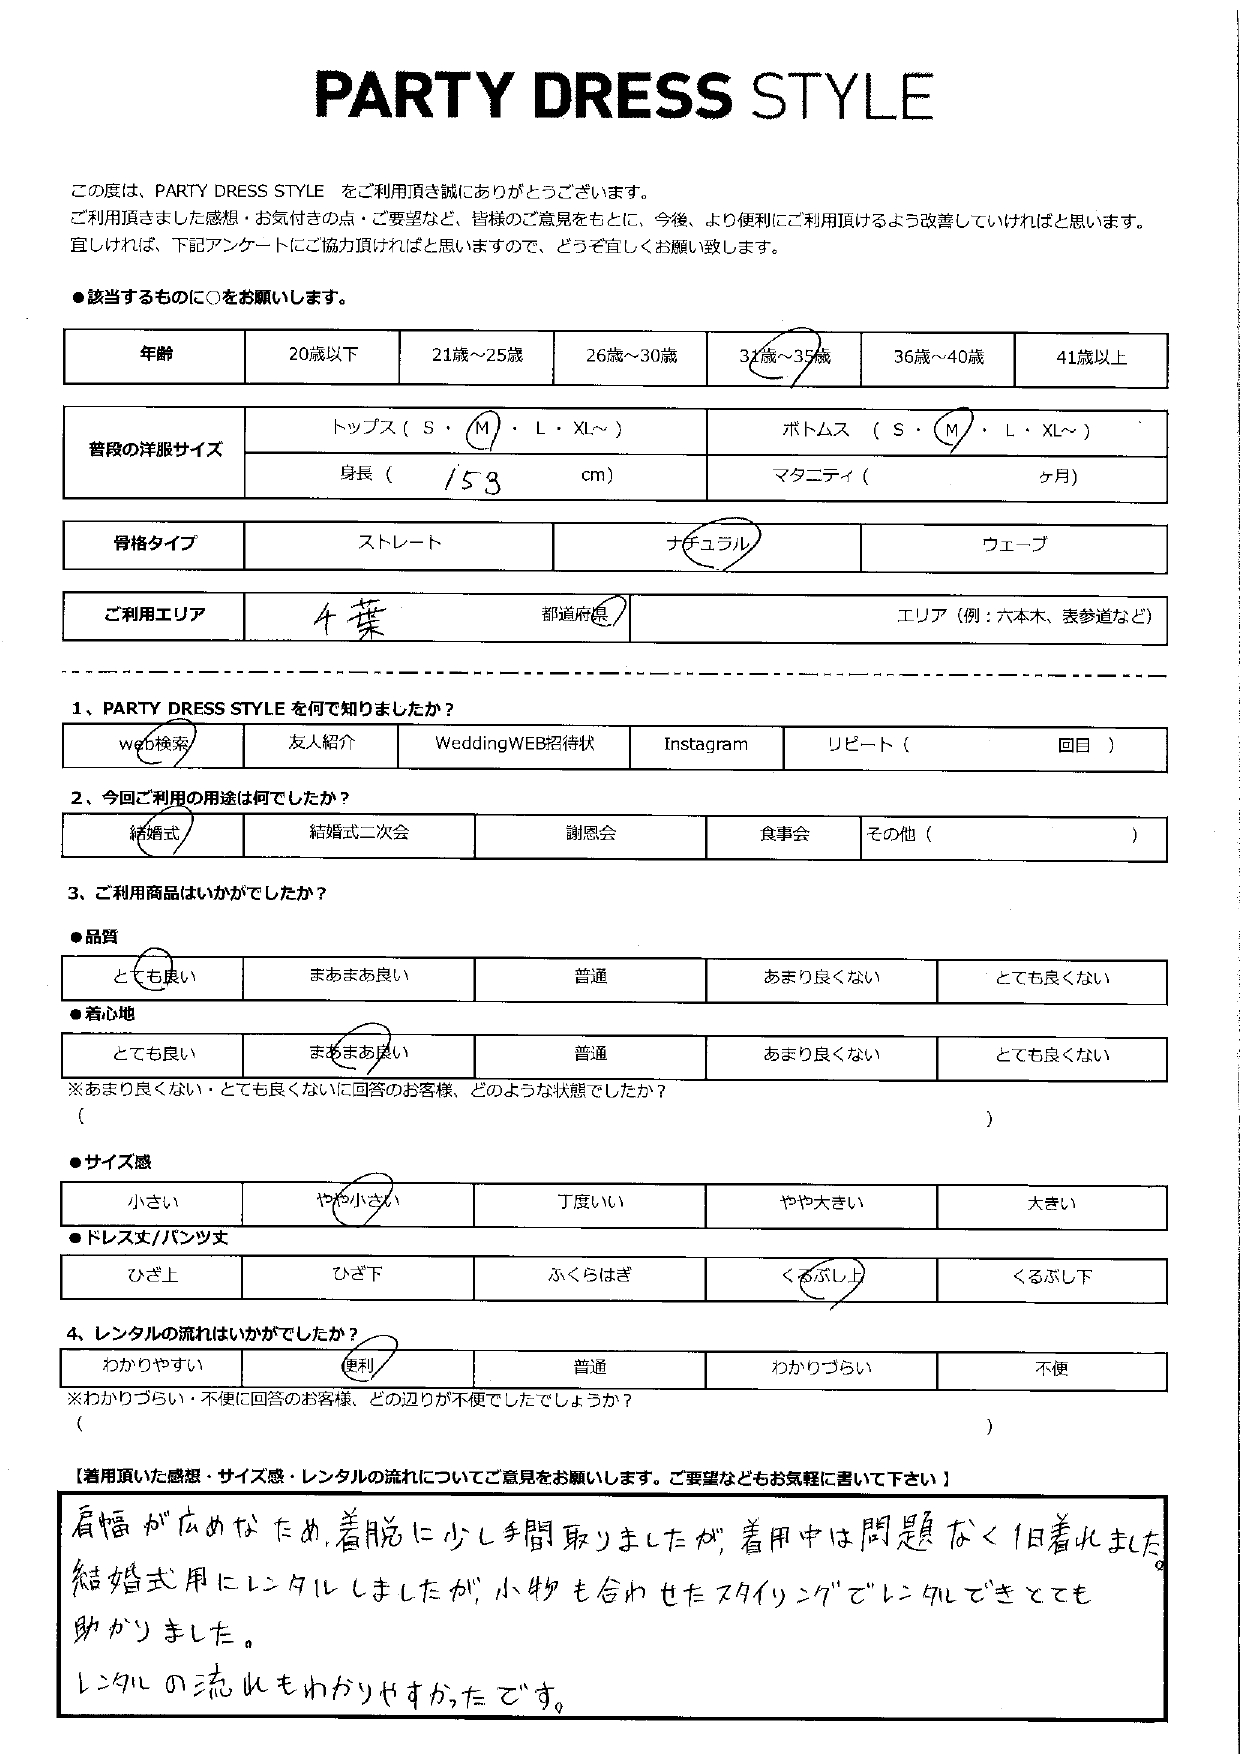 PARTY DRESS STYLE
この度は、PARTY DRESS STYLE をご利用頂き誠にありがとうございます。
ご利用頂きました感想・お気付きの点・ご要望など、皆様のご意見をもとに、今後、より便利にご利用頂けるよう改善していければと思います。
宜しければ、下記アンケートにご協力頂ければと思いますので、どうぞ宜しくお願い致します。
●該当するものに○をお願いします。
年齢 20歳以下 21歳～25歳 26歳～30歳 31歳～35歳 36歳～40歳 41歳以上
普段の洋服サイズ トップス ( S ・ M ・ L ・ XL～ ) ボトムス ( S ・ M ・ L ・ XL～ )
身長 ( 153 cm) マタニティ ( ヶ月)
骨格タイプ ストレート ナチュラル ウェーブ
ご利用エリア 千葉 都道府県 エリア（例：六本木、表参道など）
1、PARTY DRESS STYLE を何で知りましたか？
web検索 友人紹介 WeddingWEB招待状 Instagram リピート ( 回目 )
2、今回ご利用の用途は何でしたか？
結婚式 結婚式二次会 謝恩会 食事会 その他 ( )
3、ご利用商品はいかがでしたか？
●品質
とても良い まあまあ良い 普通 あまり良くない とても良くない
●着心地
とても良い まあまあ良い 普通 あまり良くない とても良くない
※あまり良くない・とても良くないに回答のお客様、どのような状態でしたか？
( )
●サイズ感
小さい やや小さい 丁度いい やや大きい 大きい
●ドレス丈/パンツ丈
ひざ上 ひざ下 ふくらはぎ くるぶし上 くるぶし下
4、レンタルの流れはいかがでしたか？
わかりやすい 便利 普通 わかりづらい 不便
※わかりづらい・不便に回答のお客様、どの辺りが不便でしたでしょうか？
( )
【着用頂いた感想・サイズ感・レンタルの流れについてご意見をお願いします。ご要望などもお気軽に書いて下さい】
肩幅が広めなため、着脱に少し手間取りましたが、着用中は問題なく1日着れました。
結婚式用にレンタルしましたが、小物も合わせたスタイリングでレンタルできとても
助かりました。
レンタルの流れもわかりやすかったです。